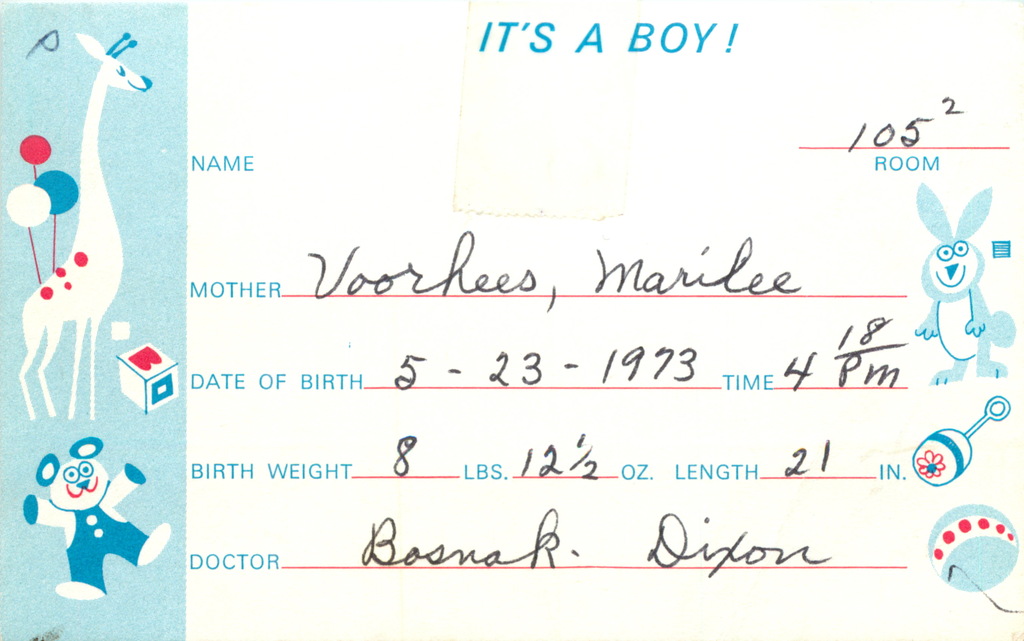 IT'S A BOY!
105²
NAME ROOM
MOTHER Voorhees, Marilee
DATE OF BIRTH 5 - 23 - 1973 TIME 4 18/Pm
BIRTH WEIGHT 8 LBS. 12 1/2 OZ. LENGTH 21 IN.
DOCTOR Bosnak. Dixon